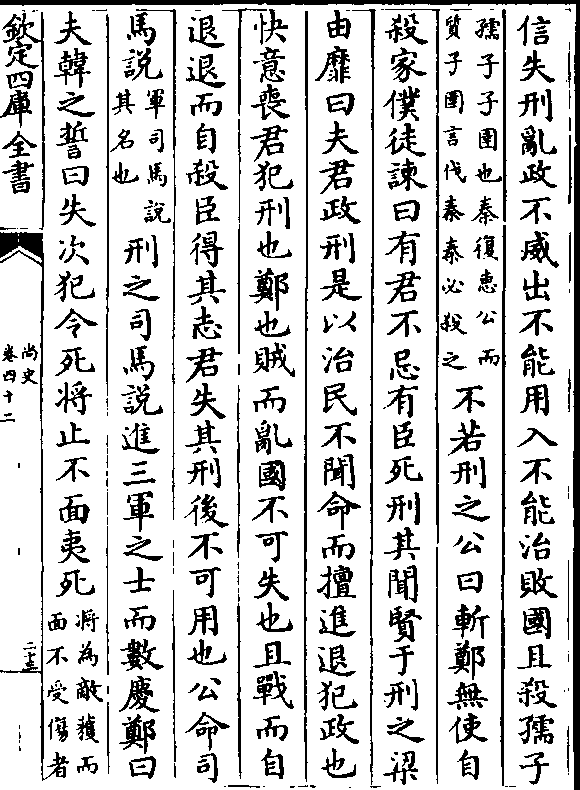 信失刑亂政不威出不能用入不能治敗國且殺孺子
孺子子圉也秦復惠公而
質子圉言伐秦秦必殺之
不若刑之公曰斬鄭無使自
殺家僕徒諫曰有君不忌有臣死刑其聞賢于刑之梁
由靡曰夫君政刑是以治民不聞命而擅進退犯政也
快意喪君犯刑也鄭也賊而亂國不可失也且戰而自
退退而自殺臣得其志君失其刑後不可用也公命司
馬說
軍司馬說
其名也
刑之司馬說進三軍之士而數慶鄭曰
夫韓之誓曰失次犯令死將止不面夷死
將為敵獲而
面不受傷者
欽定四庫全書
尚史
卷四十二
二十三